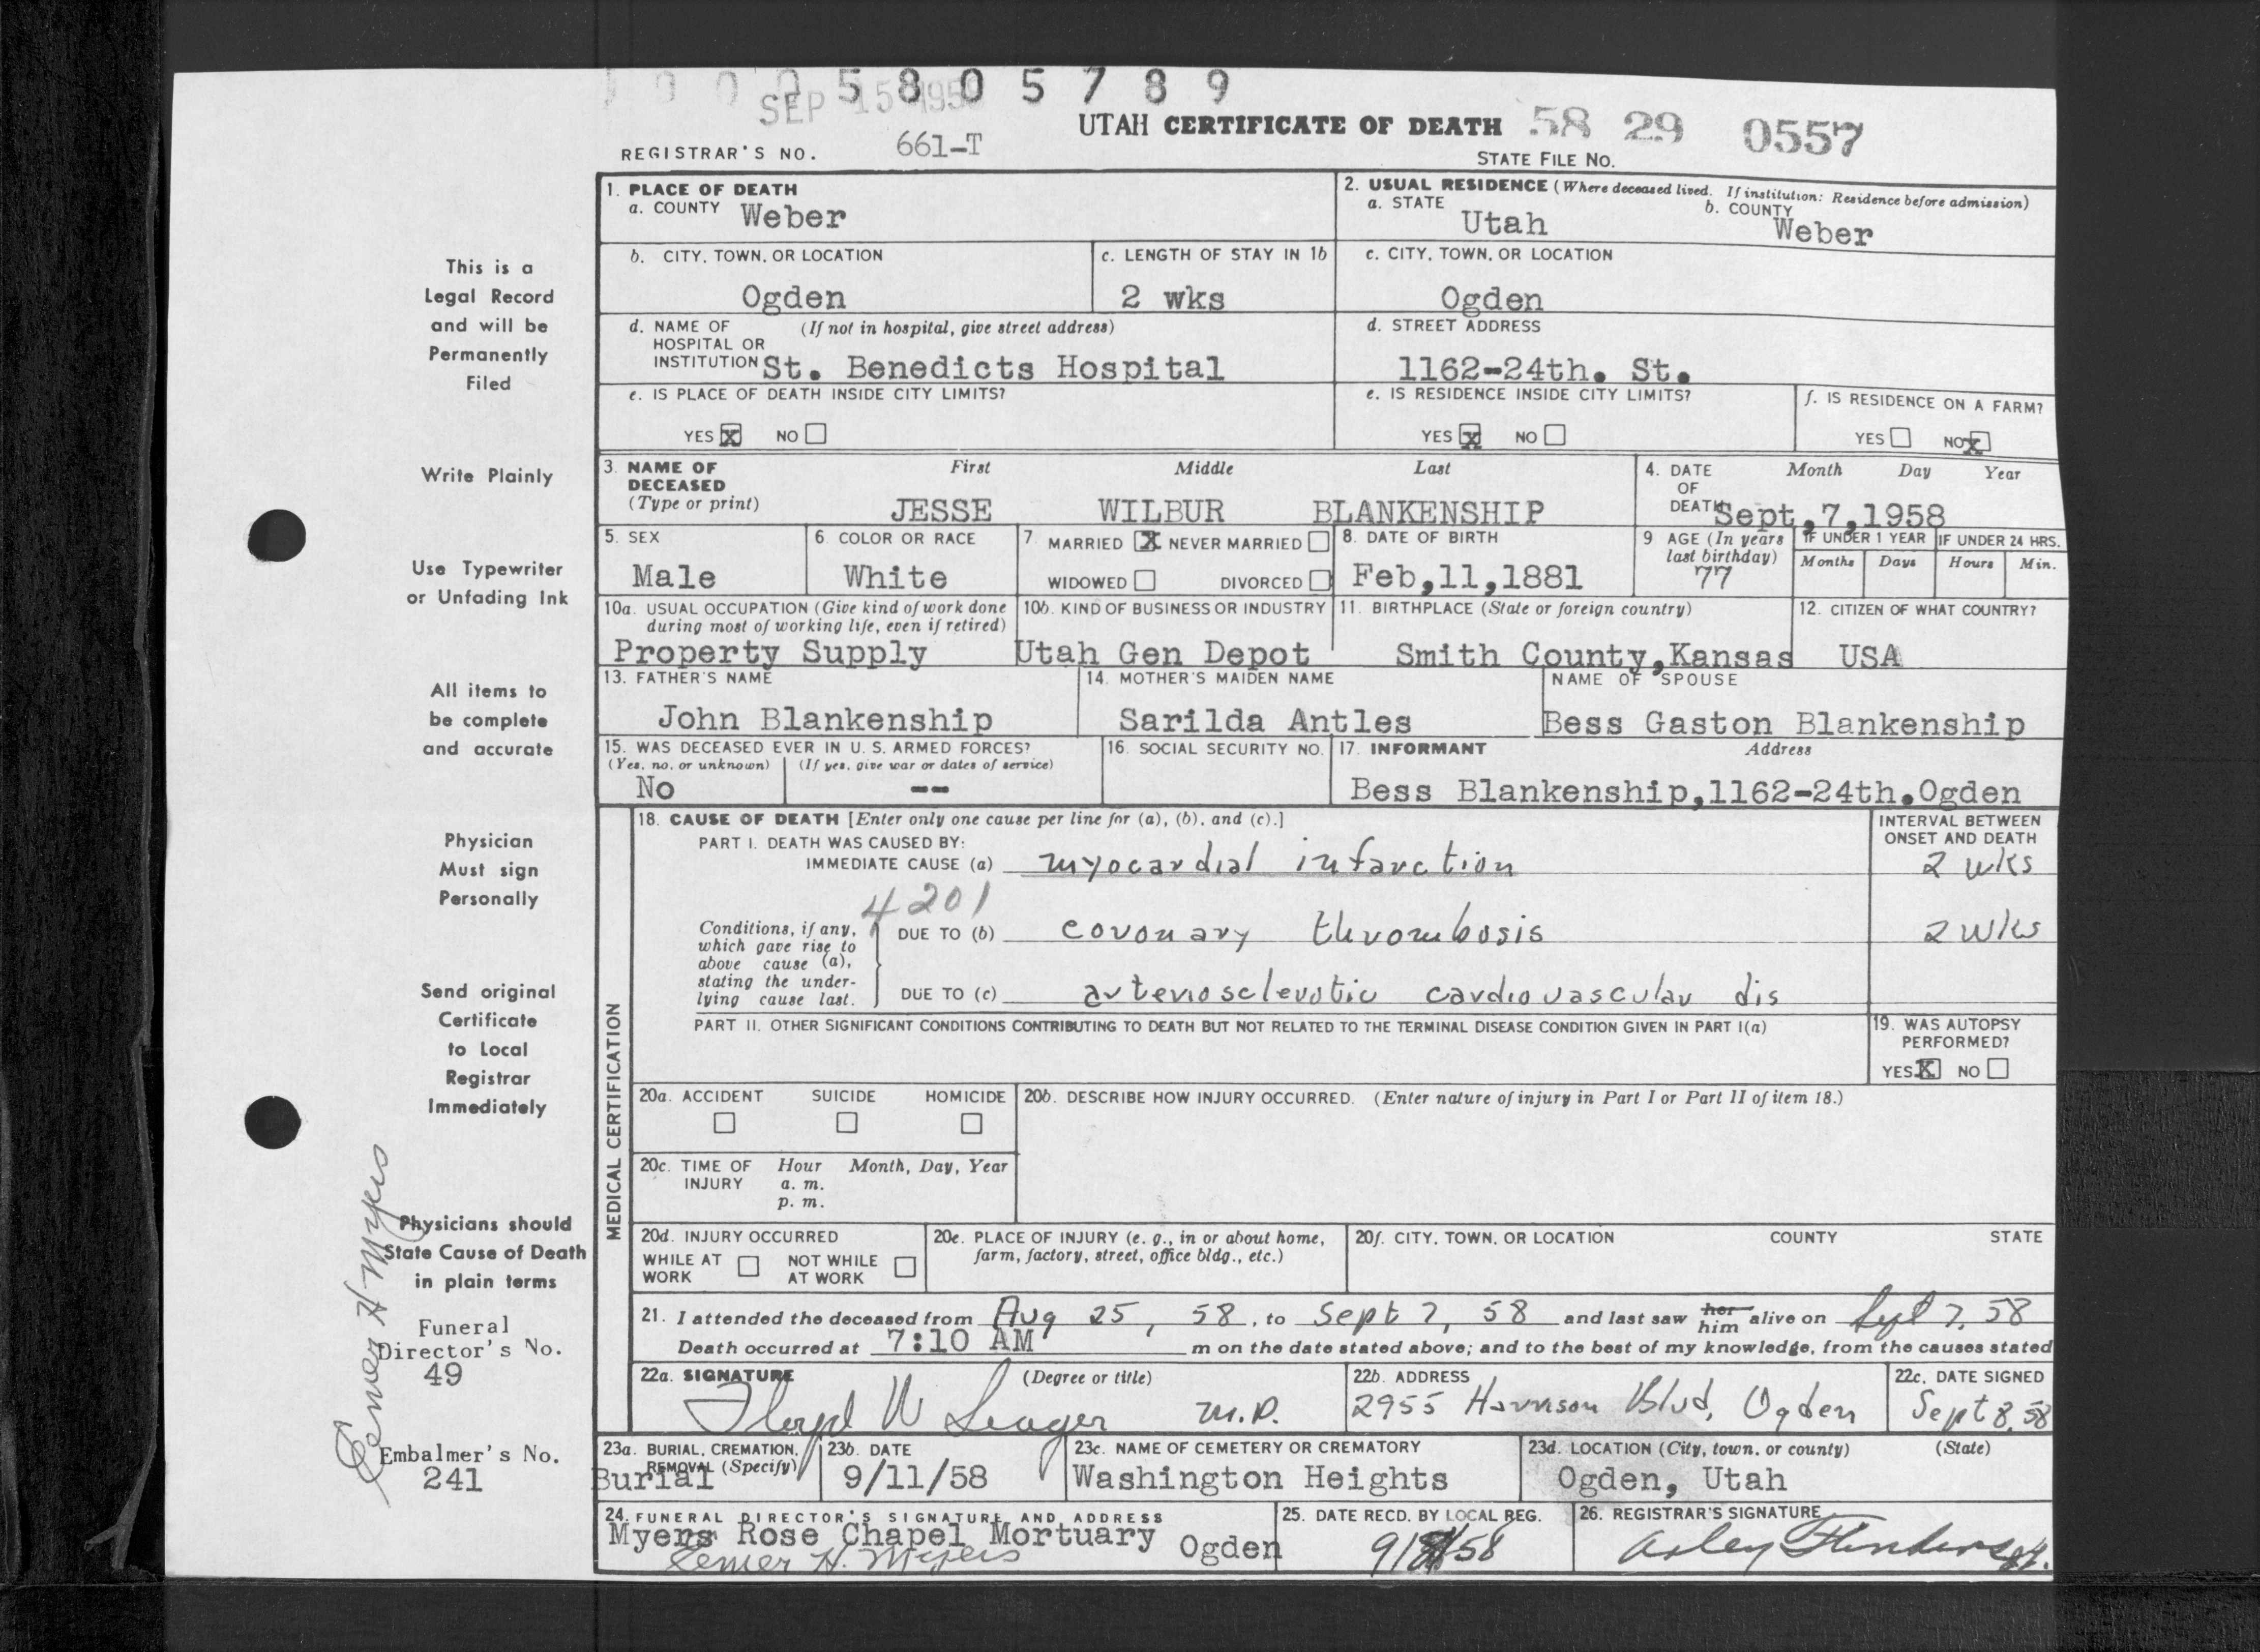 0 0 0 5 8 0 5 7 8 9
SEP 15 195
UTAH CERTIFICATE OF DEATH 58 29 0557
REGISTRAR'S NO. 661-T
STATE FILE NO.
1. PLACE OF DEATH
a. COUNTY Weber
2. USUAL RESIDENCE (Where deceased lived. If institution: Residence before admission)
a. STATE Utah b. COUNTY Weber
b. CITY, TOWN, OR LOCATION Ogden
c. LENGTH OF STAY IN 1b 2 wks
c. CITY, TOWN, OR LOCATION Ogden
d. NAME OF (If not in hospital, give street address)
HOSPITAL OR
INSTITUTION St. Benedicts Hospital
d. STREET ADDRESS
1162-24th. St.
e. IS PLACE OF DEATH INSIDE CITY LIMITS?
YES X NO
e. IS RESIDENCE INSIDE CITY LIMITS?
YES X NO
f. IS RESIDENCE ON A FARM?
YES NO X
3. NAME OF DECEASED (Type or print)
First Middle Last
JESSE WILBUR BLANKENSHIP
4. DATE OF DEATH Month Day Year
Sept,7,1958
5. SEX
Male
6. COLOR OR RACE
White
7. MARRIED X NEVER MARRIED
WIDOWED DIVORCED
8. DATE OF BIRTH
Feb,11,1881
9 AGE (In years last birthday)
77
IF UNDER 1 YEAR IF UNDER 24 HRS.
Months Days Hours Min.
10a. USUAL OCCUPATION (Give kind of work done
during most of working life, even if retired)
Property Supply
10b. KIND OF BUSINESS OR INDUSTRY
Utah Gen Depot
11. BIRTHPLACE (State or foreign country)
Smith County,Kansas
12. CITIZEN OF WHAT COUNTRY?
USA
13. FATHER'S NAME
John Blankenship
14. MOTHER'S MAIDEN NAME
Sarilda Antles
NAME OF SPOUSE
Bess Gaston Blankenship
15. WAS DECEASED EVER IN U. S. ARMED FORCES?
(Yes, no, or unknown) (If yes, give war or dates of service)
No --
16. SOCIAL SECURITY NO.
17. INFORMANT Address
Bess Blankenship,1162-24th.Ogden
MEDICAL CERTIFICATION
18. CAUSE OF DEATH [Enter only one cause per line for (a), (b), and (c).]
INTERVAL BETWEEN
ONSET AND DEATH
PART I. DEATH WAS CAUSED BY:
IMMEDIATE CAUSE (a) myocardial infarction 2 wks
4201
Conditions, if any,
which gave rise to
above cause (a),
stating the under-
lying cause last.
DUE TO (b) coronary thrombosis 2 wks
DUE TO (c) arteriosclerotic cardiovascular dis
PART II. OTHER SIGNIFICANT CONDITIONS CONTRIBUTING TO DEATH BUT NOT RELATED TO THE TERMINAL DISEASE CONDITION GIVEN IN PART I(a)
19. WAS AUTOPSY
PERFORMED?
YES X NO
20a. ACCIDENT SUICIDE HOMICIDE
20b. DESCRIBE HOW INJURY OCCURRED. (Enter nature of injury in Part I or Part II of item 18.)
20c. TIME OF INJURY Hour Month, Day, Year
a. m.
p. m.
20d. INJURY OCCURRED
WHILE AT WORK NOT WHILE AT WORK
20e. PLACE OF INJURY (e. g., in or about home,
farm, factory, street, office bldg., etc.)
20f. CITY, TOWN, OR LOCATION COUNTY STATE
21. I attended the deceased from Aug 25, 58, to Sept 7, 58 and last saw her him alive on Sept 7, 58
Death occurred at 7:10 AM m on the date stated above; and to the best of my knowledge, from the causes stated
22a. SIGNATURE (Degree or title)
Floyd W Seager M.D.
22b. ADDRESS
2955 Harrison Blvd, Ogden
22c. DATE SIGNED
Sept 8, 58
23a. BURIAL, CREMATION,
REMOVAL (Specify)
Burial
23b. DATE
9/11/58
23c. NAME OF CEMETERY OR CREMATORY
Washington Heights
23d. LOCATION (City, town, or county) (State)
Ogden, Utah
24. FUNERAL DIRECTOR'S SIGNATURE AND ADDRESS
Myers Rose Chapel Mortuary Ogden
Elmer H. Myers
25. DATE RECD. BY LOCAL REG.
26. REGISTRAR'S SIGNATURE
This is a
Legal Record
and will be
Permanently
Filed
Write Plainly
Use Typewriter
or Unfading Ink
All items to
be complete
and accurate
Physician
Must sign
Personally
Send original
Certificate
to Local
Registrar
Immediately
Physicians should
State Cause of Death
in plain terms
Funeral
Director's No.
49
Embalmer's No.
241
Elmer H Myers